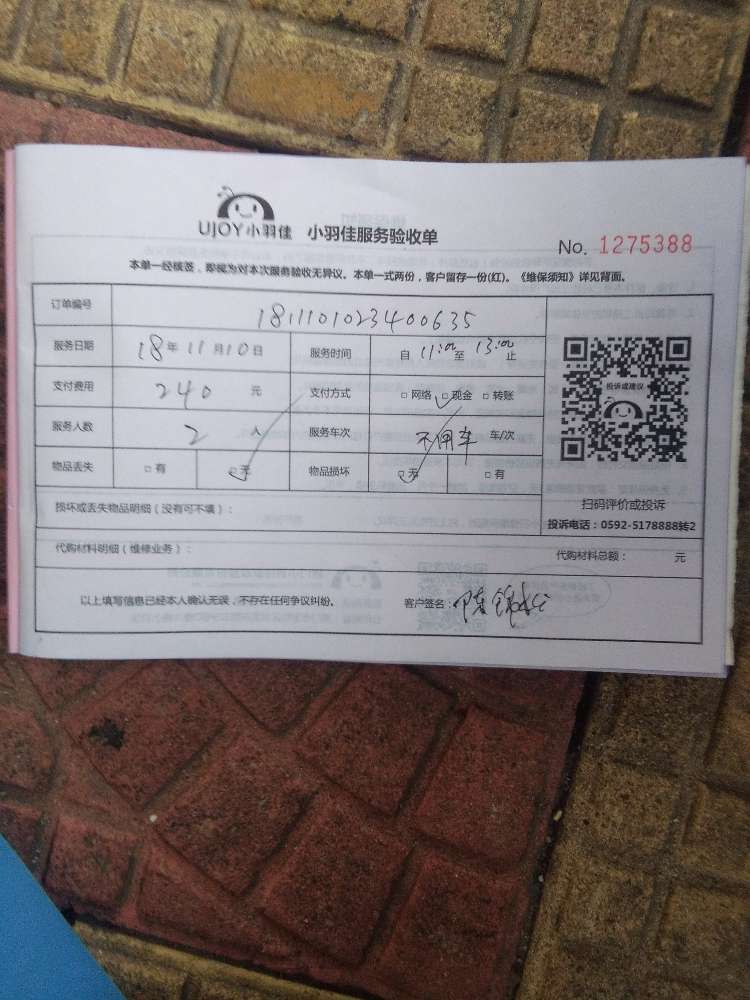 UJOY小羽佳 小羽佳服务验收单
No. 1275388
本单一经核签，即视为对本次服务验收无异议。本单一式两份，客户留存一份(红)。《维保须知》详见背面。
订单编号 1811101023400635
服务日期 18年11月10日 服务时间 自11:00至13:00止
支付费用 240元 支付方式 □网络 □现金 □转账
服务人数 2人 服务车次 不用车 车/次
物品丢失 □有 □无 物品损坏 □无 □有
投诉或建议
扫码评价或投诉
投诉电话：0592-5178888转2
损坏或丢失物品明细（没有可不填）：
代购材料明细（维修业务）： 代购材料总额： 元
以上填写信息已经本人确认无误，不存在任何争议纠纷。 客户签名：